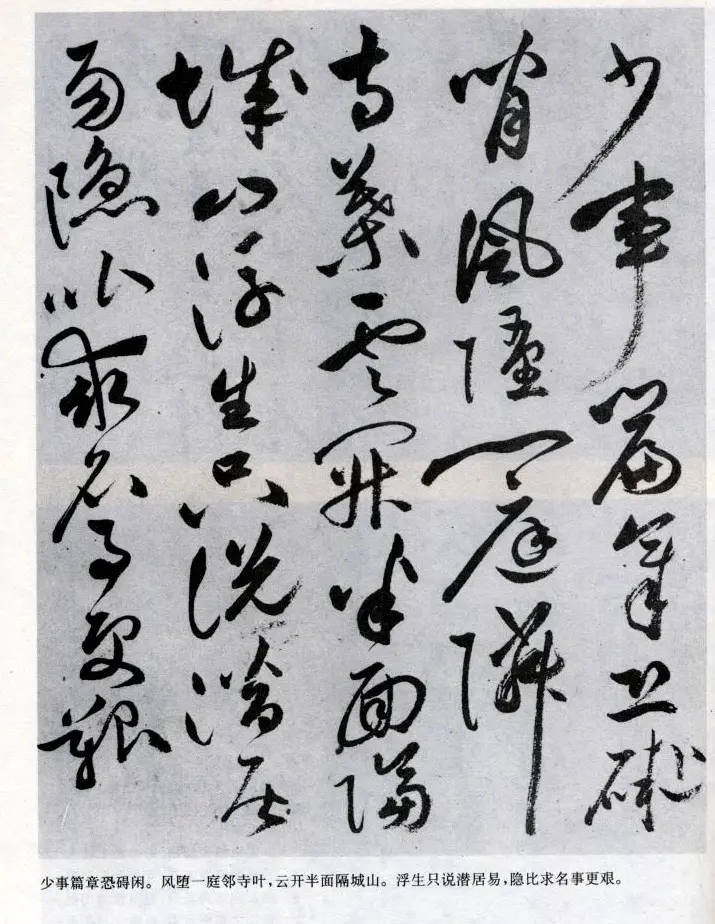 少事篇章恐礙
閒風墮一庭鄰
寺葉雲開半面隔
城山浮生只説潛居
易隱比求名事更艱
少事篇章恐碍闲。风堕一庭邻寺叶，云开半面隔城山。浮生只说潜居易，隐比求名事更艰。